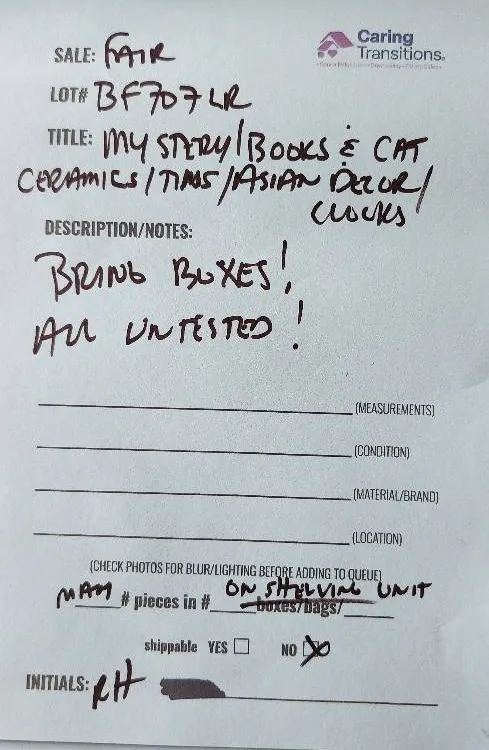 Caring
Transitions.
SALE: FAIR
LOT# BF707LR
TITLE: MYSTERY/BOOKS & CAT
CERAMICS/TINS/ASIAN DECOR/
CLOCKS
DESCRIPTION/NOTES:
BRING BOXES!
ALL UNTESTED!
(MEASUREMENTS)
(CONDITION)
(MATERIAL/BRAND)
(LOCATION)
(CHECK PHOTOS FOR BLUR/LIGHTING BEFORE ADDING TO QUEUE)
ON SHELVING UNIT
# pieces in # boxes/bags/
shippable YES NO
INITIALS: RH